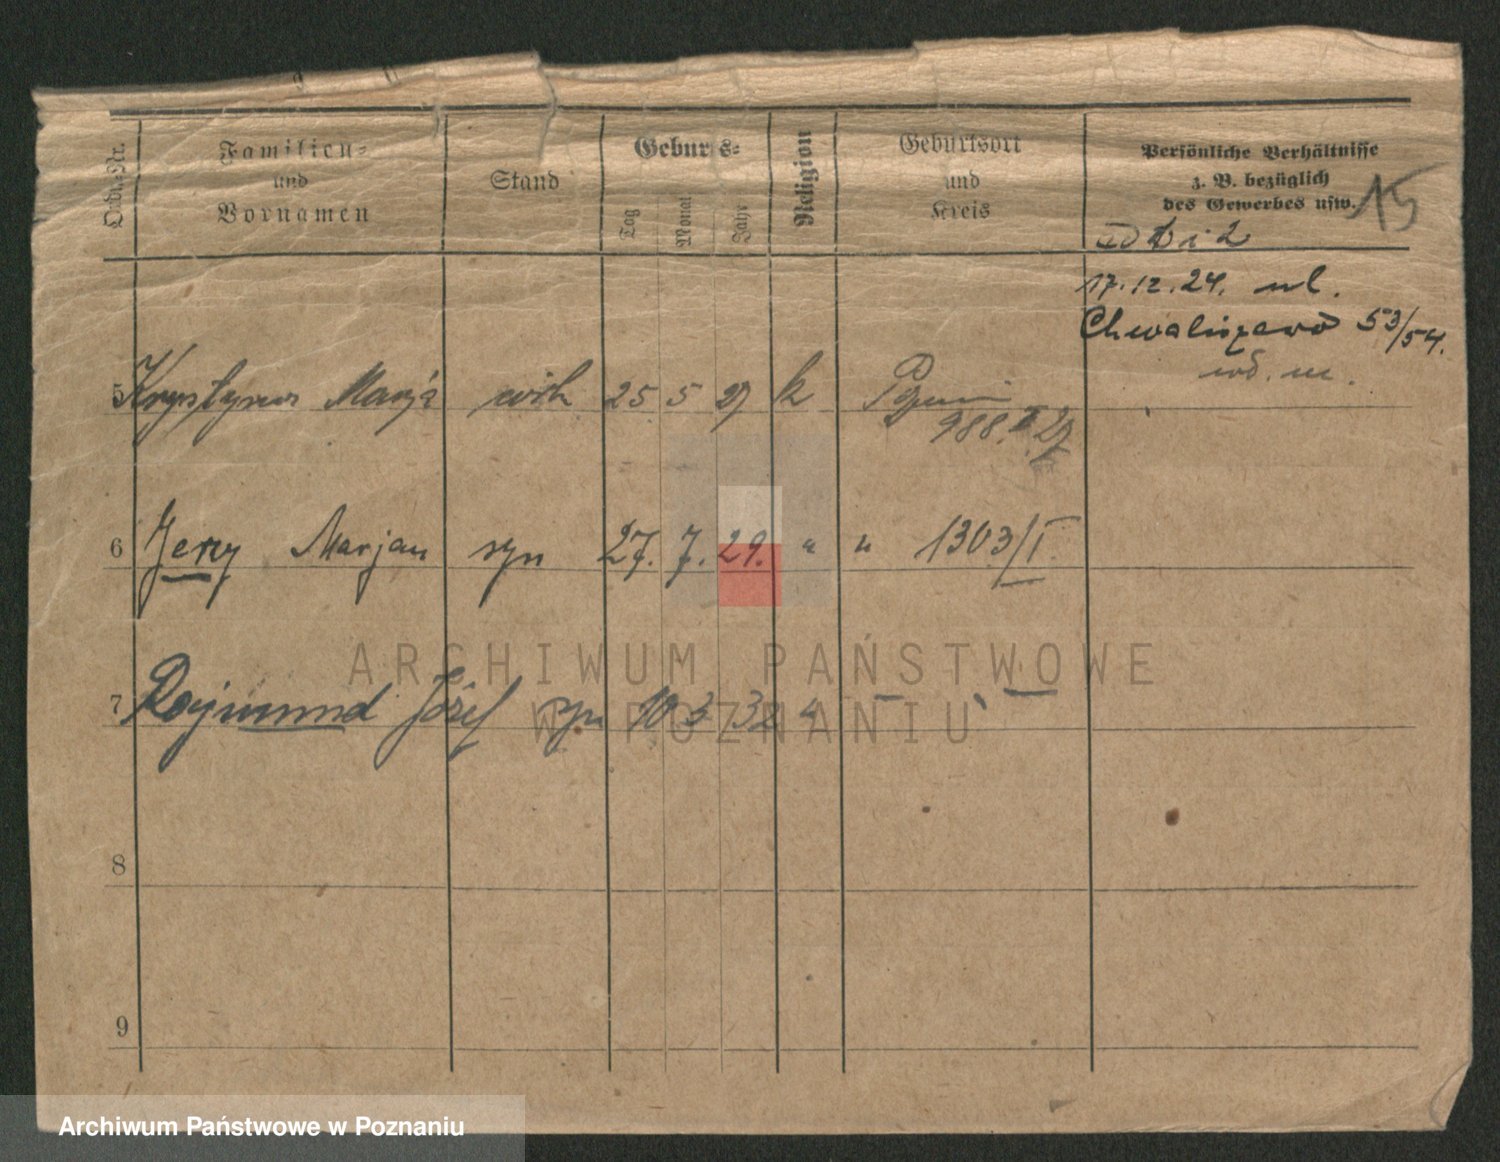 Ordn.-Nr.
Familien-
und
Vornamen
Stand
Geburts-
Tag
Monat
Jahr
Religion
Geburtsort
und
Kreis
Persönliche Verhältnisse
z. B. bezüglich
des Gewerbes usw.
15
17.12.24. ul.
Chwaliszewo 53/54.
5 Krystyna Marja 25 5 27 k
988. II 27
6 Jerzy Marjan syn 27. 7. 29. " " 1303/I.
7 Rajmund Józef syn 10 3 32 "
8
9
ARCHIWUM PAŃSTWOWE
W POZNANIU
Archiwum Państwowe w Poznaniu